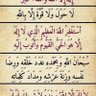 لا حول ولا قوة إلا بالله
أستغفر الله العظيم الذي لا إله
إلا هو الحي القيوم وأتوب إليه
سبحان الله وبحمده عدد خلقه ورضا
نفسه وزنة عرشه ومداد كلماته